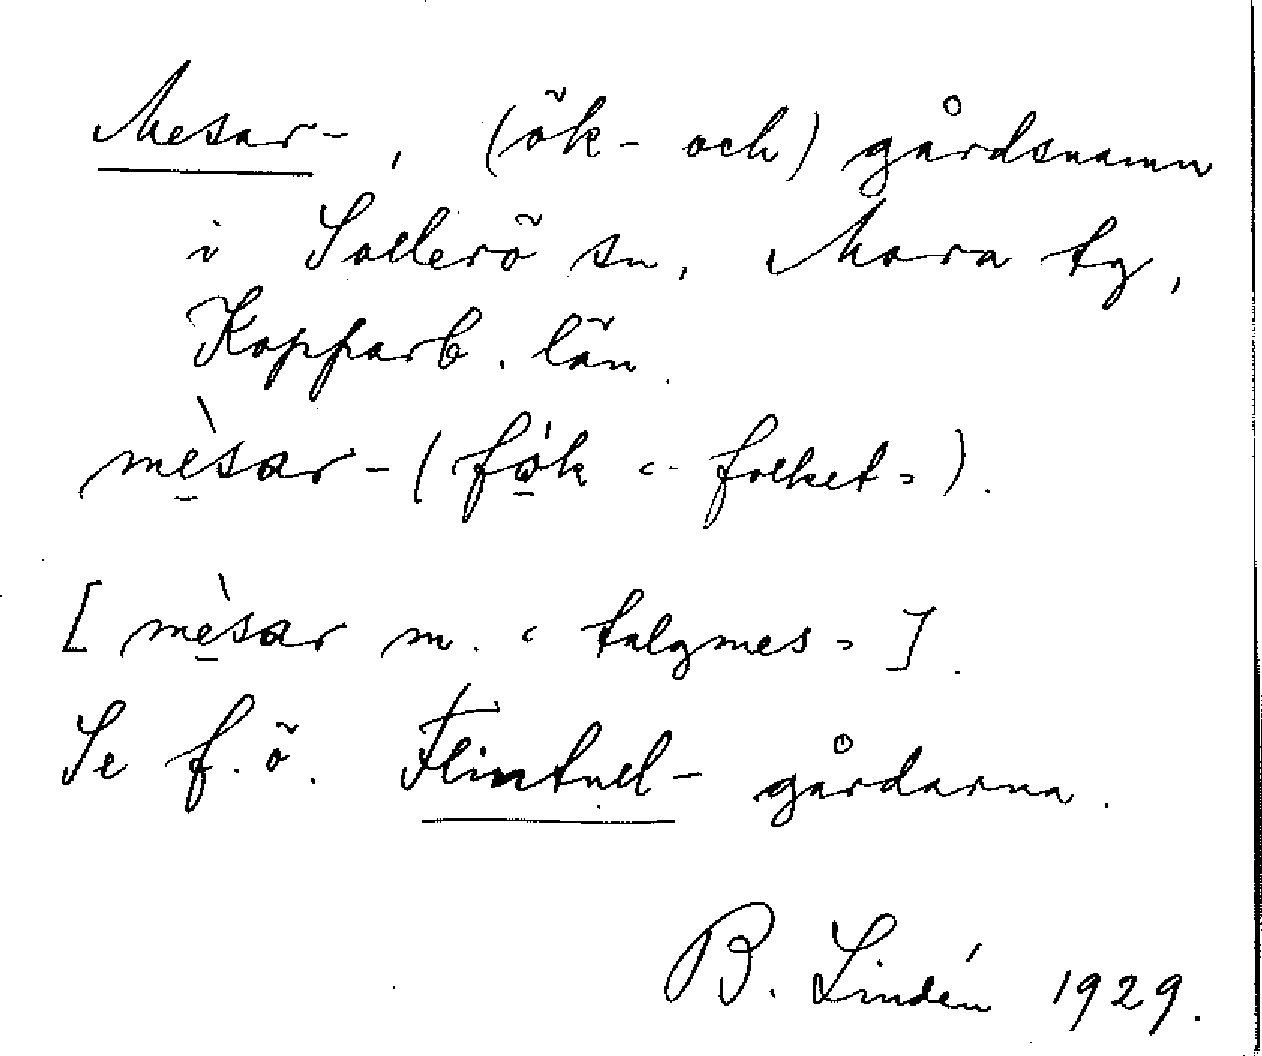 Mesar-, (ök- och) gårdsnamn
i Sollerö sn, Mora tg,
Kopparb. län.
mè̱sar- (fò̱k "folket").
[mè̱sar m. "talgmes"].
Se f.ö. gårdarna.
B. Lindén 1929.